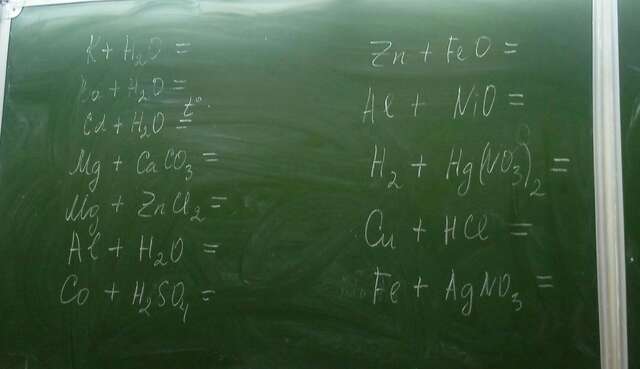 K + H₂O =
Ba + H₂O =
Cd + H₂O = t°
Mg + CaCO₃ =
Mg + ZnCl₂ =
Al + H₂O =
Co + H₂SO₄ =
Zn + FeO =
Al + NiO =
H₂ + Hg(NO₃)₂ =
Cu + HCl =
Fe + AgNO₃ =